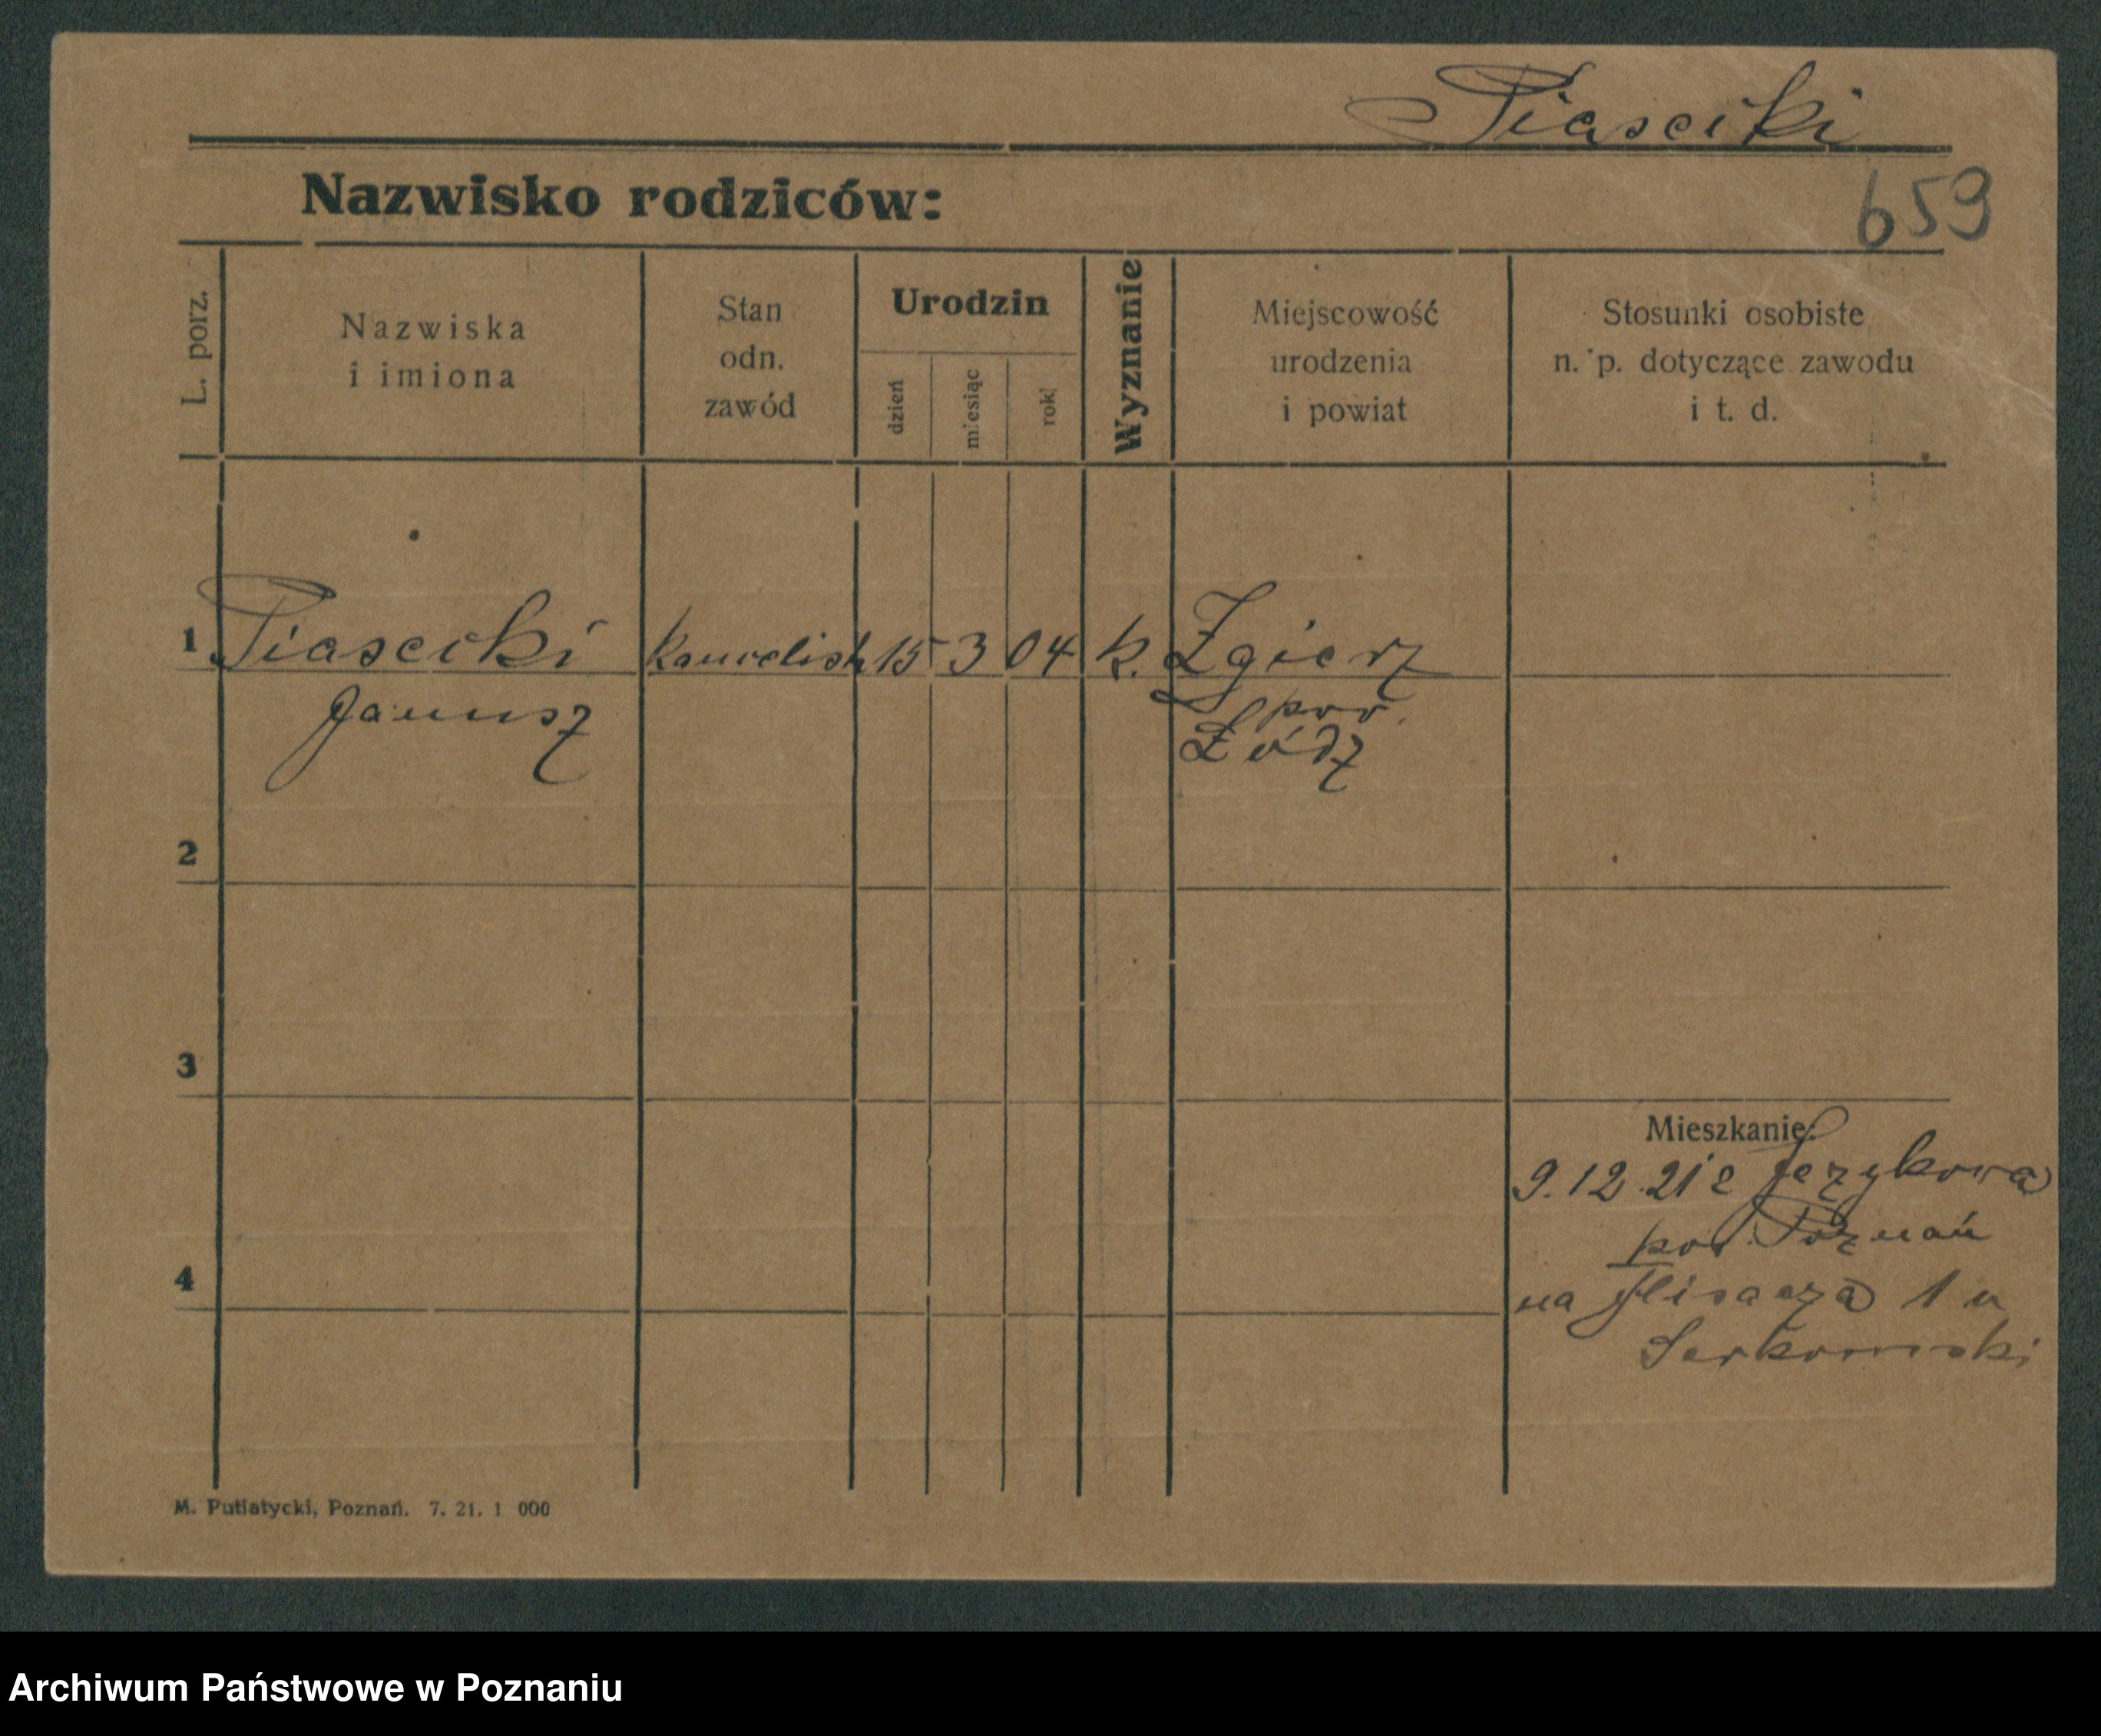 Piasecki
Nazwisko rodziców:
659
L. porz.
Nazwiska
i imiona
Stan
odn.
zawód
Urodzin
dzień
miesiąc
rok
Wyznanie
Miejscowość
urodzenia
i powiat
Stosunki osobiste
n. p. dotyczące zawodu
i t. d.
1 Piasecki 15 3 04 k. Zgierz
Janusz pow.
Łódz
2
3
Mieszkanie:
9.12.21 z Jezykowa
pow. Poznań
4
na 1 u
Serkowski
M. Putiatycki, Poznań. 7. 21. 1 000
Archiwum Państwowe w Poznaniu